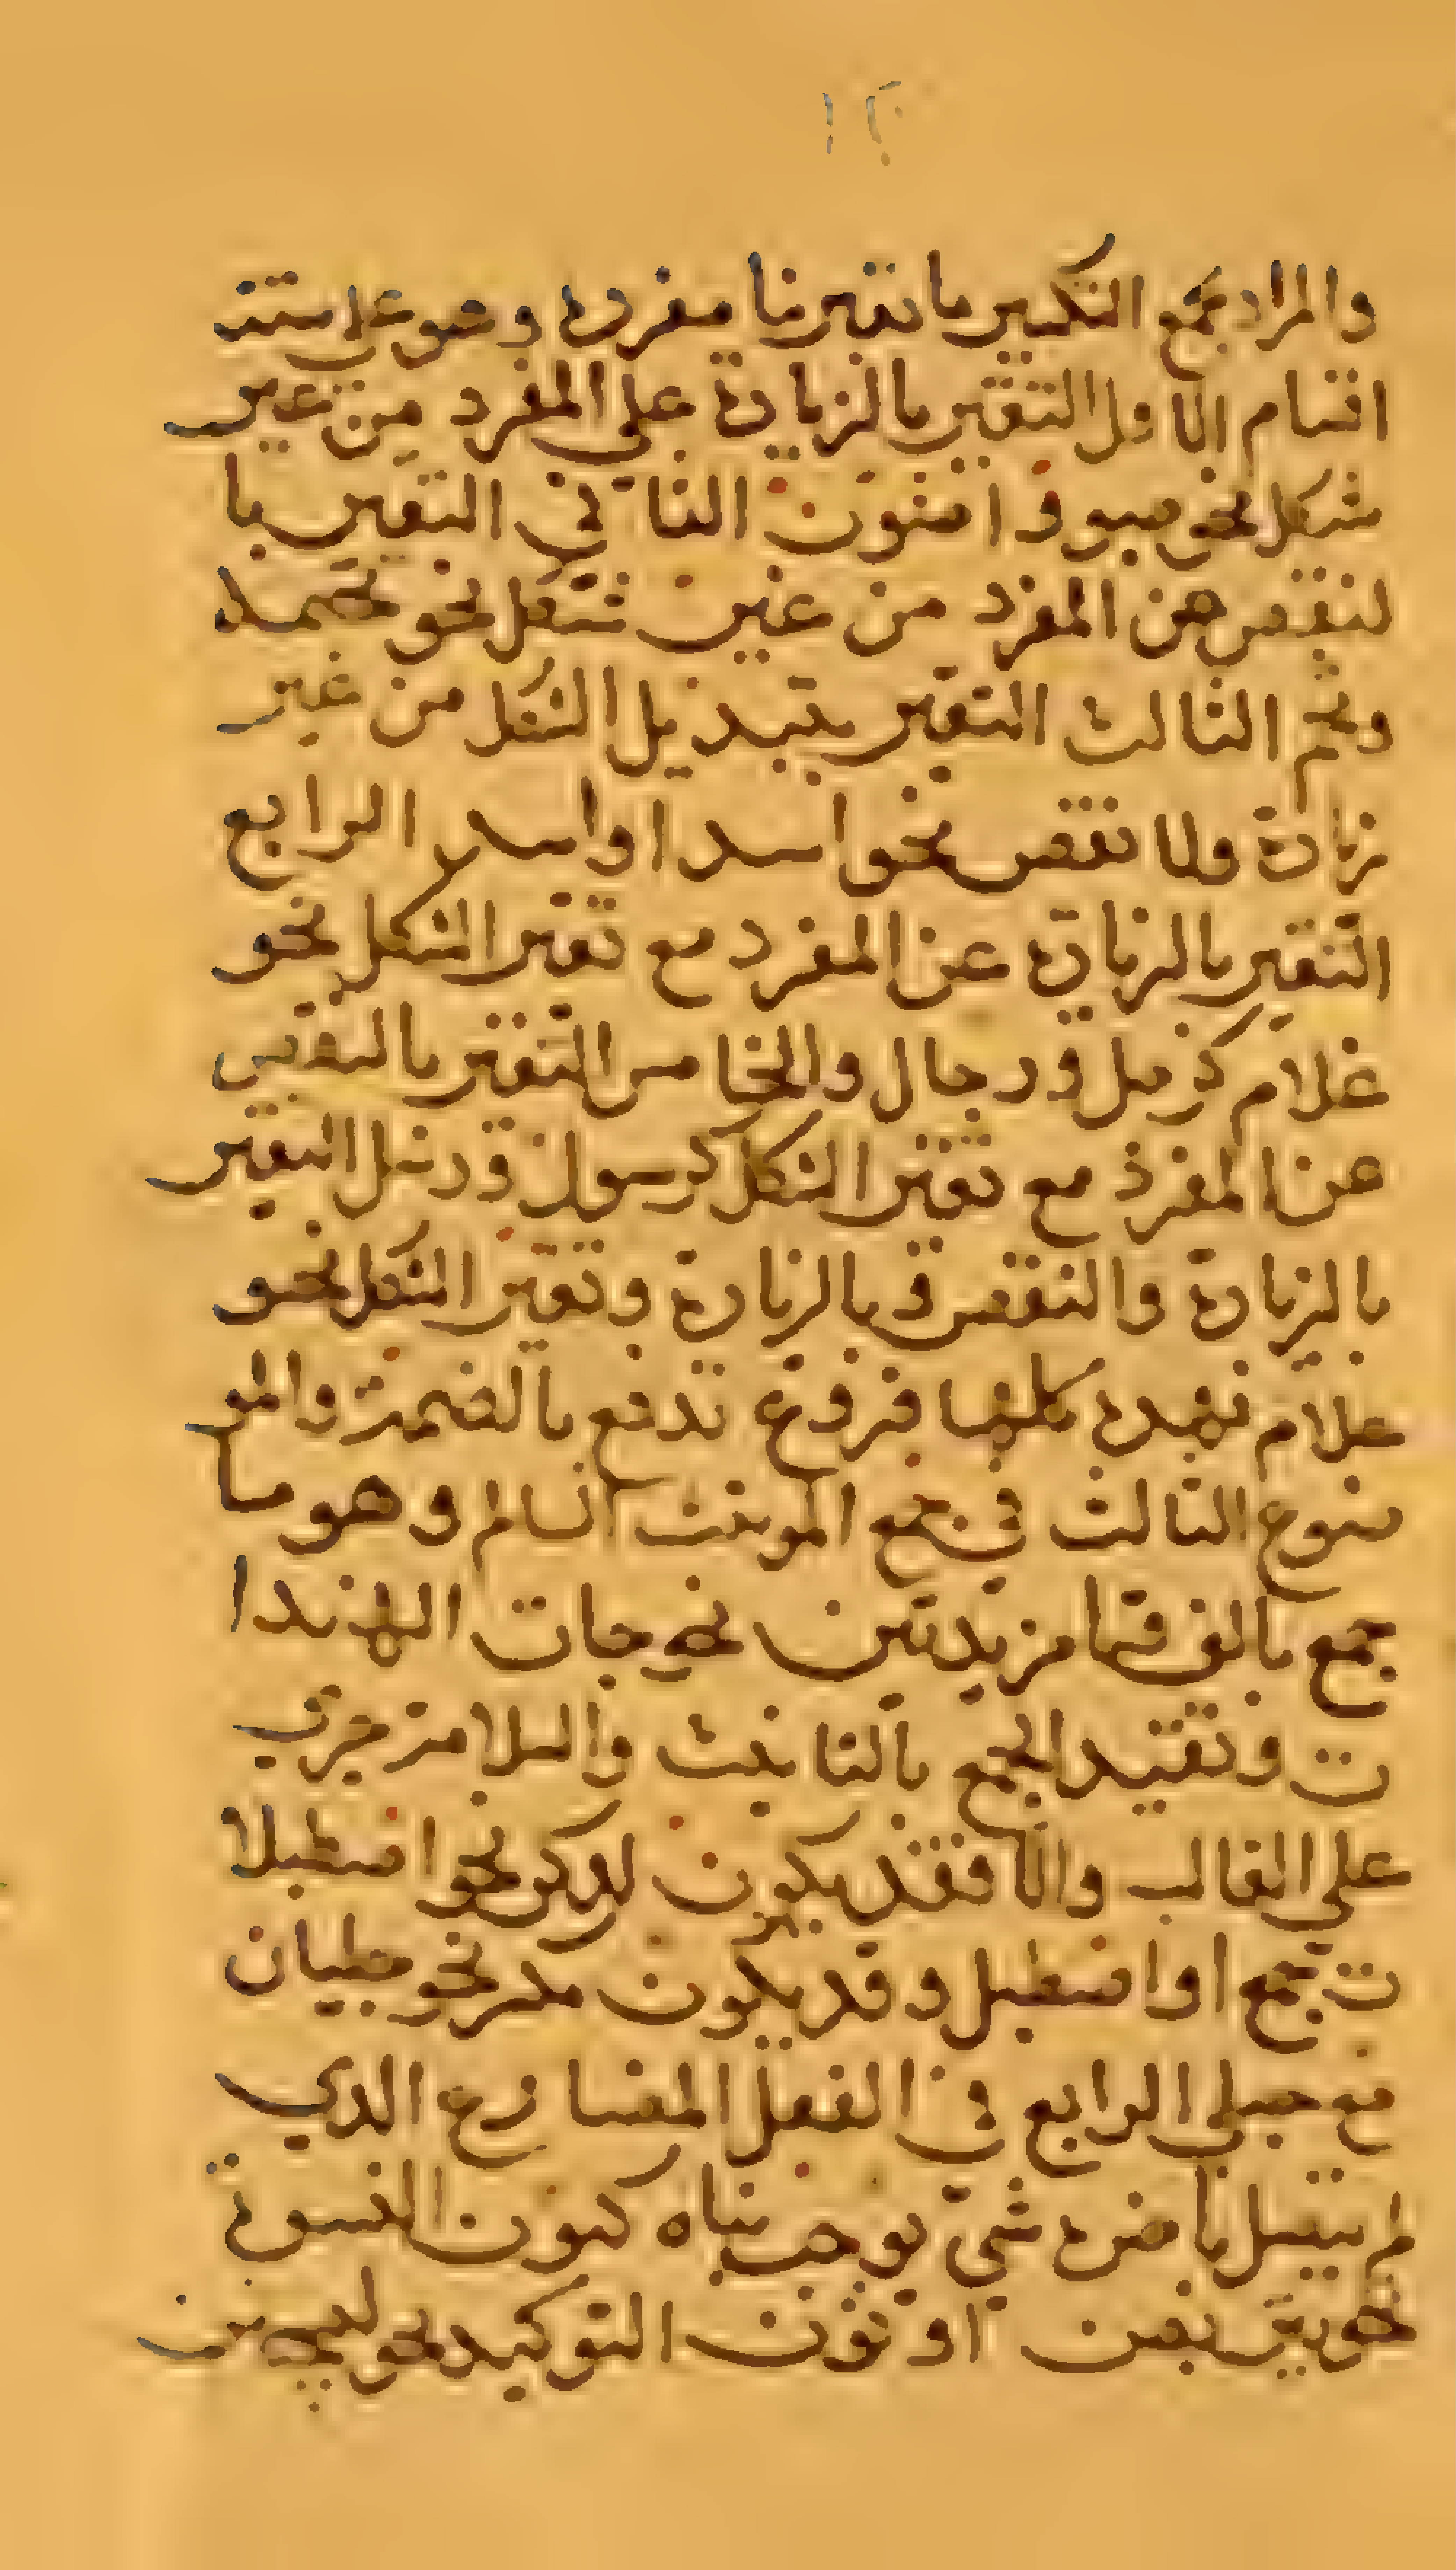 ١٢
والمراد بجمع التكسير ما تغير بنا مفرده وهو على ستت
اقسام الاول التغير بالزيادة على المفرد من غير
شكل نحو صنو و اصنون الثاني التغير با
لنقص عن المفرد من غير شكل نحو تخمه
وتخم الثالث التغير بتبديل الشكل من غير
زيادة ولا نقص نحو اسد او اسد الرابع
التغير بالزيادة عن المفرد مع تغير الشكل نحو
غلام كرجل و رجال والخامس التغير بالنقص
عن المفرد مع تغير الشكل كرسول و رسل التغير
بالزيادة والنقص و بالزيادة وتغير الشكل نحو
غلام فهده كلها فروع ترفع بالضمة والمو
ضوع الثالث في جمع المونث السالم وهو ما
جمع بالف وتا مزيدتين نحو جات الهندا
ت وتقيد الجمع بالتانيث والسلامة جرى
على الغالب والا فقد يكون لدكر نحو اصطبلا
ت جمع اواصطبل وقد يكون مكسر نحو حبليان
مع حبلى الرابع في الفعل المضارع الدي
لم يتصل باخره شي يوجب بناه كنون النسوة
نحو يتربصن او نون التوكيد نحو ليسجنن